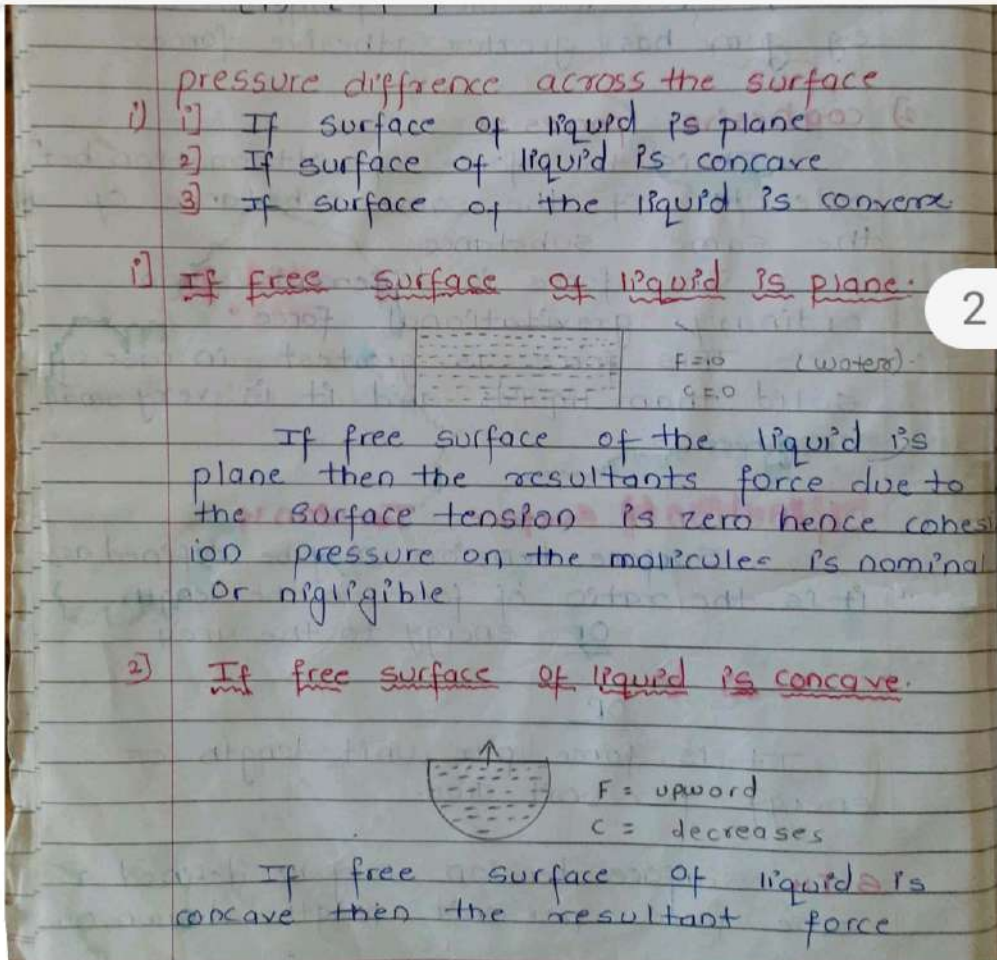 pressure diffrence across the surface
i) i] If surface of liquid is plane
2] If surface of liquid is concave
3] If surface of the liquid is converx
i] If free surface of liquid is plane.
2
F = 0 (water)
C = 0
If free surface of the liquid is
plane then the resultants force due to
the surface tension is zero hence cohes
ion pressure on the molicules is nominal
or nigligible
2] If free surface of liquid is concave.
F = upword
C = decreases
If free surface of liquid is
concave then the resultant force